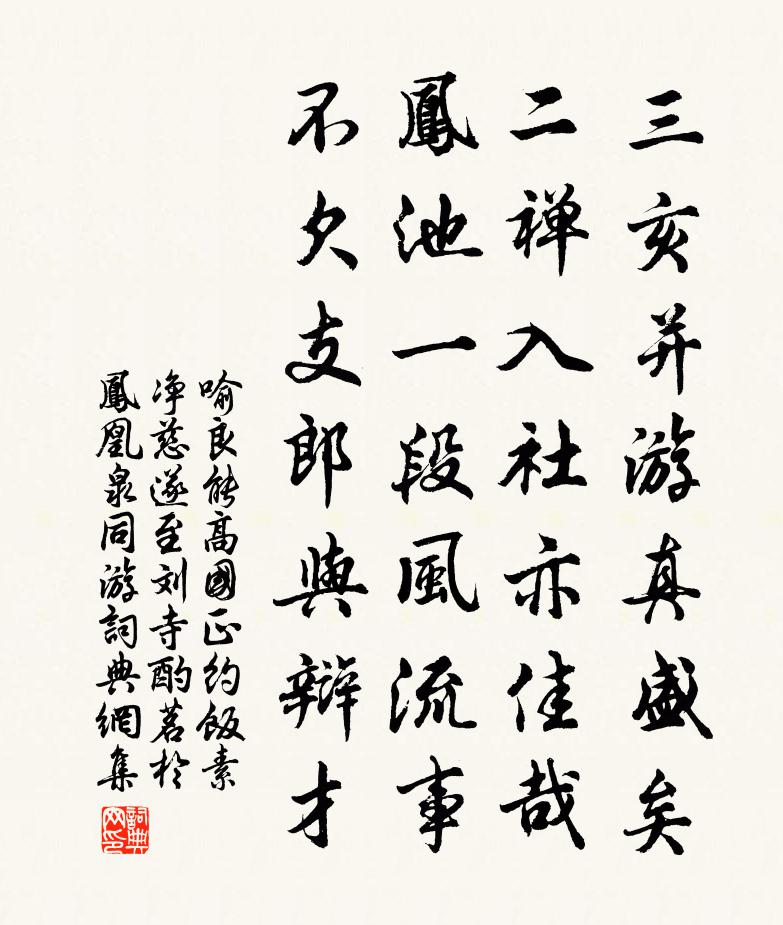 三亥并游真盛矣
二禅入社亦佳哉
鳳池一段風流事
不欠支郎與辯才
喻良能高國正約飯素
净慈遂至刘寺酌茗於
鳳凰泉同游詞典網集
詞典网印